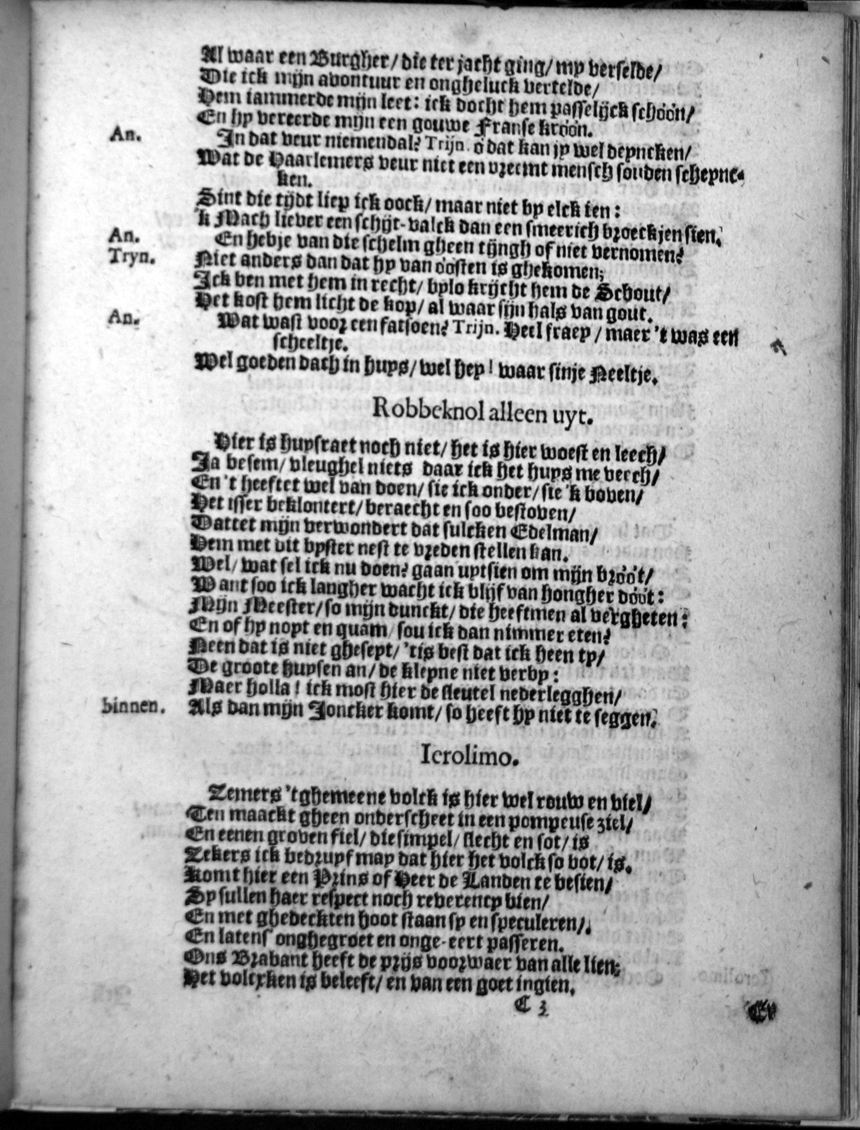 Al waar een Burgher/ die ter jacht ging/ my verselde/
Die ick mijn avontuur en ongheluck vertelde/
Hem iammerde mijn leet: ick docht hem passelijck schóón/
En hy vereerde mijn een gouwe Franse króón.
An. In dat veur niemendal? Trijn. ó dat kan jy wel deyncken/
Wat de Haarlemers veur niet een vreemt mensch souden scheyne-
ken.
Sint die tijdt liep ick oock/ maar niet by elck ien:
'k Mach liever een schijt-valck dan een smeerich broeckjen sien.
An. En hebje van die schelm gheen tijngh of niet vernomen?
Tryn. Niet anders dan dat hy van óósten is ghekomen;
Ick ben met hem in recht/ bylo krijcht hem de Schout/
Het kost hem licht de kop/ al waar sijn hals van gout.
An. Wat wast voor een fatsoen? Trijn. Heel fraey/ maer 't was een
scheeltje.
Wel goeden dach in huys/ wel hey! waar sinje Neeltje.
Robbeknol alleen uyt.
Hier is huysraet noch niet/ het is hier woest en leech/
Ja besem/ vleughel niets daar ick het huys me veech/
En 't heeftet wel van doen/ sie ick onder/ sie 'k boven/
Het isser beklontert/ beraecht en soo bestoven/
Dattet mijn verwondert dat sulcken Edelman/
Hem met dit byster nest te vreden stellen kan.
Wel/ wat sel ick nu doen? gaan uytsien om mijn bróót/
Want soo ick langher wacht ick blijf van hongher dóót:
Mijn Meester/ so mijn dunckt/ die heeftmen al vergheten:
En of hy noyt en quam/ sou ick dan nimmer eten?
Neen dat is niet gheseyt/ 'tis best dat ick heen ty/
De groote huysen an/ de kleyne niet verby:
Maer holla! ick most hier de sleutel nederlegghen/
binnen. Als dan mijn Joncker komt/ so heeft hy niet te seggen.
Ierolimo.
Zemers 'tghemeene volck is hier wel rouw en viel/
Ten maackt gheen onderscheet in een pompeuse ziel/
En eenen groven fiel/ die simpel/ slecht en sot/ is
Zekers ick bedruyf may dat hier het volck so bot/ is.
Komt hier een Prins of Heer de Landen te besien/
Sy sullen haer respect noch reverency bien/
En met ghedeckten hoot staan sy en speculeren/
En latens' onghegroet en onge-eert passeren.
Ons Brabant heeft de prijs voorwaer van alle lien;
Het volcxken is beleeft/ en van een goet ingien.
C 3